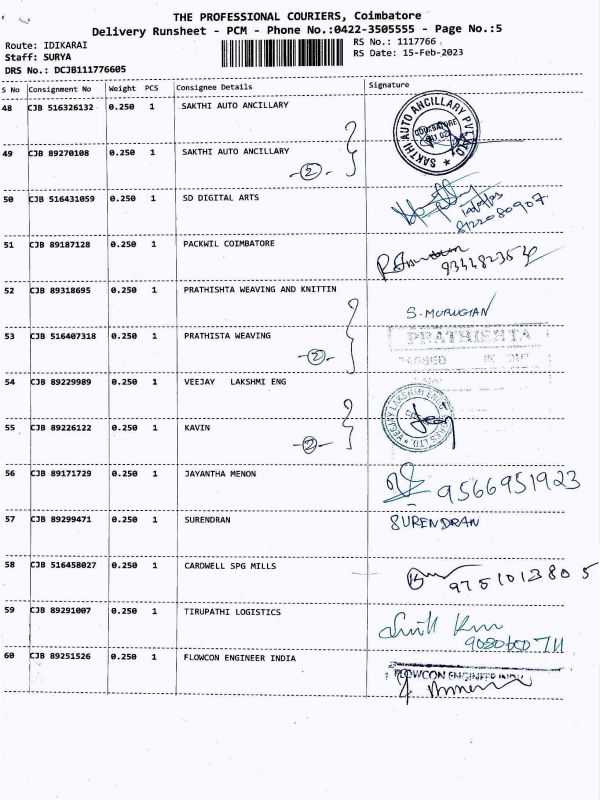 THE PROFESSIONAL COURIERS, Coimbatore
Delivery Runsheet - PCM - Phone No.:0422-3505555 - Page No.:5
Route: IDIKARAI RS No.: 1117766
Staff: SURYA RS Date: 15-Feb-2023
DRS No.: DCJB111776605
S No Consignment No Weight PCS Consignee Details Signature
48 CJB 516326132 0.250 1 SAKTHI AUTO ANCILLARY
SAKTHI AUTO ANCILLARY PVT COIMBATORE
49 CJB 89270108 0.250 1 SAKTHI AUTO ANCILLARY
-2-
50 CJB 516431059 0.250 1 SD DIGITAL ARTS
8122080907
51 CJB 89187128 0.250 1 PACKWIL COIMBATORE
52 CJB 89318695 0.250 1 PRATHISHTA WEAVING AND KNITTIN
S. MURUGAN
53 CJB 516407318 0.250 1 PRATHISTA WEAVING
PRATHISHTA
-2-
54 CJB 89229989 0.250 1 VEEJAY LAKSHMI ENG
VEEJAY LAKSHMI LTD.
55 CJB 89226122 0.250 1 KAVIN
-2-
56 CJB 89171729 0.250 1 JAYANTHA MENON
9566951923
57 CJB 89299471 0.250 1 SURENDRAN
SURENDRAN
58 CJB 516458027 0.250 1 CARDWELL SPG MILLS
9751013805
59 CJB 89291007 0.250 1 TIRUPATHI LOGISTICS
60 CJB 89251526 0.250 1 FLOWCON ENGINEER INDIA
FLOWCON ENGINEER INDIA